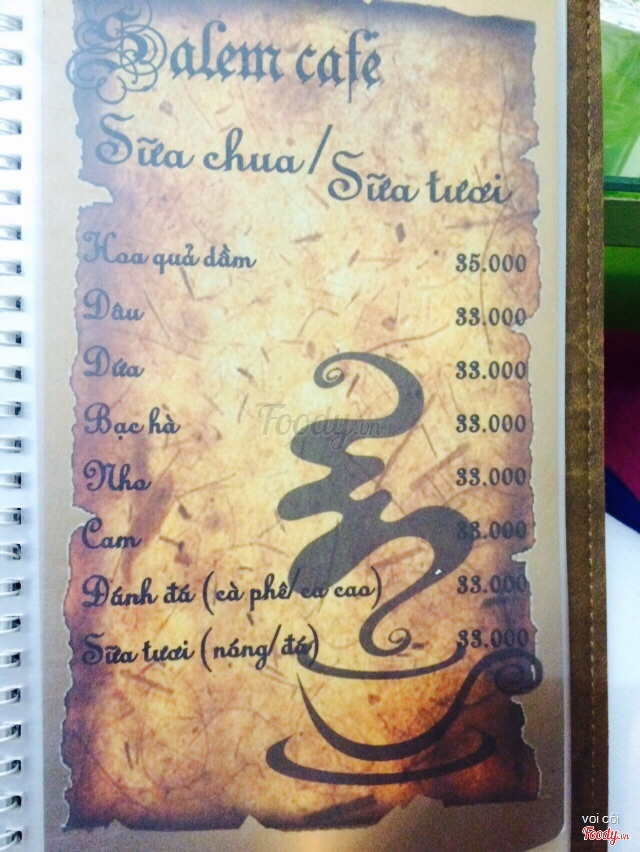 Salem café
Sữa chua/Sữa tươi
Hoa quả dầm 35.000
Dâu 33.000
Dứa 33.000
Bạc hà 33.000
Nho 33.000
Cam 33.000
Đánh đá (cà phê/ca cao) 33.000
Sữa tươi (nóng/đá) 33.000
Foody.vn
voi còi
Foody.vn